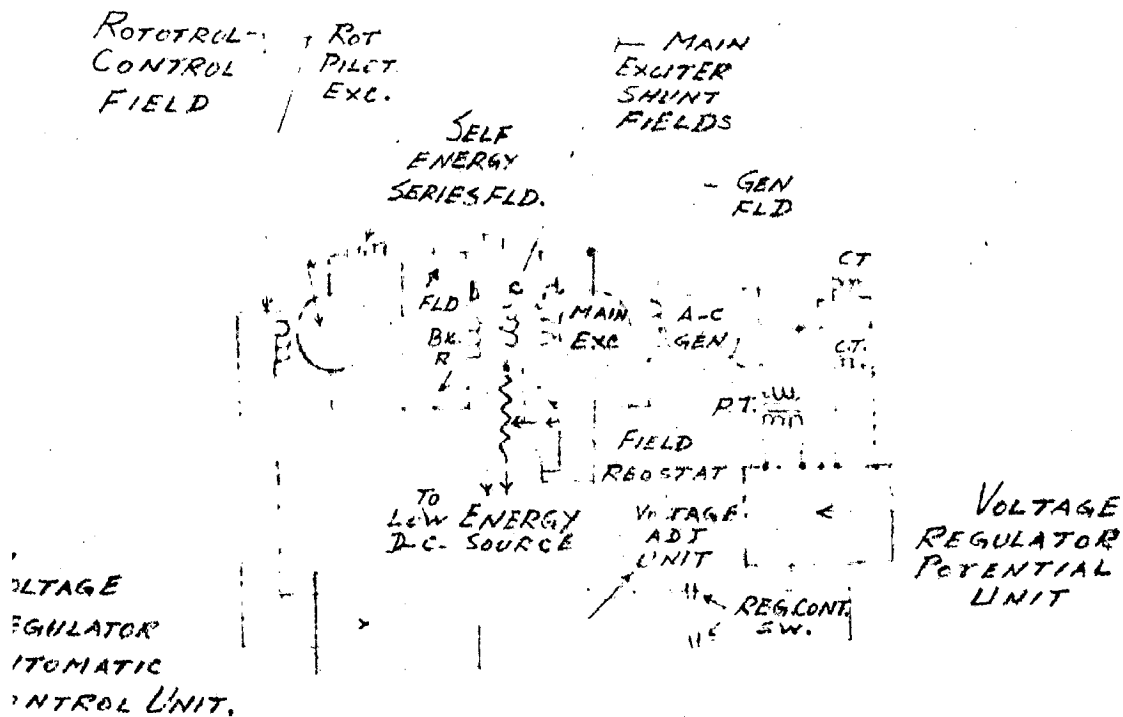 ROTOTROL
CONTROL
FIELD
ROT
PILOT
EXC.
MAIN
EXCITER
SHUNT
FIELDS
SELF
ENERGY
SERIES FLD.
GEN
FLD
CT
FLD
BKR
MAIN
EXC
A-C
GEN
C.T.
P.T.
FIELD
REOSTAT
TO
LOW ENERGY
D.C. SOURCE
VOLTAGE
ADJ
UNIT
VOLTAGE
REGULATOR
POTENTIAL
UNIT
REG. CONT.
SW.
OLTAGE
EGULATOR
UTOMATIC
ONTROL UNIT.